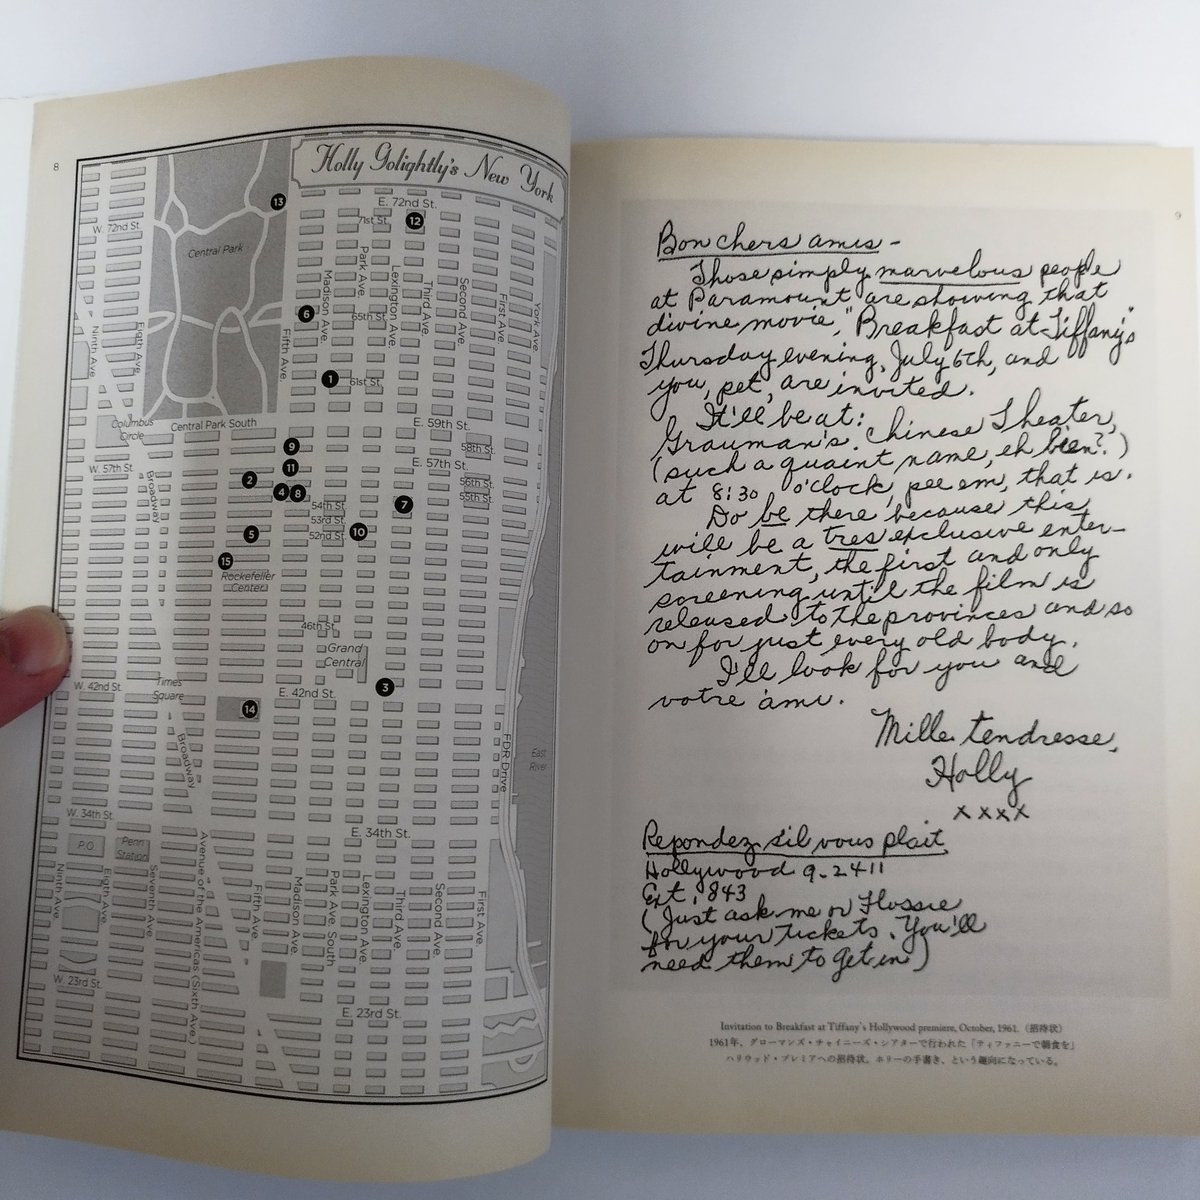 8
Holly Golightly's New York
13
E. 72nd St.
71st St.
12
W. 72nd St.
Central Park
Park Ave.
Madison Ave.
Lexington Ave.
Third Ave.
Second Ave.
First Ave.
York Ave.
6
65th St.
Ninth Ave.
Eigth Ave.
Fifth Ave.
1
61st St.
Columbus Circle
Central Park South
E. 59th St.
9
58th St.
W. 57th St.
11
E. 57th St.
Broadway
2
56th St.
4
8
55th St.
54th St.
7
53rd St.
5
52nd St.
10
15
Rockefeller Center
46th St.
Grand Central
W. 42nd St.
Times Square
E. 42nd St.
3
14
Broadway
FDR Drive
East River
W. 34th St.
E. 34th St.
P.O.
Penn Station
Ninth Ave.
Eigth Ave.
Seventh Ave.
Avenue of the Americas (Sixth Ave.)
Fifth Ave.
Madison Ave.
Park Ave. South
Lexington Ave.
Third Ave.
Second Ave.
First Ave.
W. 23rd St.
E. 23rd St.
9
Bon chers amis -
Those simply marvelous people
at Paramount are showing that
divine movie, "Breakfast at Tiffany's"
Thursday evening, July 6th, and
you, pet, are invited.
It'll be at:
Grauman's Chinese Theater,
(such a quaint name, eh bien?)
at 8:30 o'clock, pee em, that is.
Do be there because this
will be a tres exclusive enter-
tainment, the first and only
screening until the film is
released to the provinces and so
on for just every old body.
I'll look for you and
votre ami.
Mille tendresse,
Holly
xxxx
Repondez sil vous plait
Hollywood 9-2411
Ext. 843
(Just ask me or Flossie
for your tickets. You'll
need them to get in)
Invitation to Breakfast at Tiffany's Hollywood premiere, October, 1961.（招待状）
1961年、グローマンズ・チャイニーズ・シアターで行われた「ティファニーで朝食を」
ハリウッド・プレミアへの招待状。ホリーの手書き、という趣向になっている。